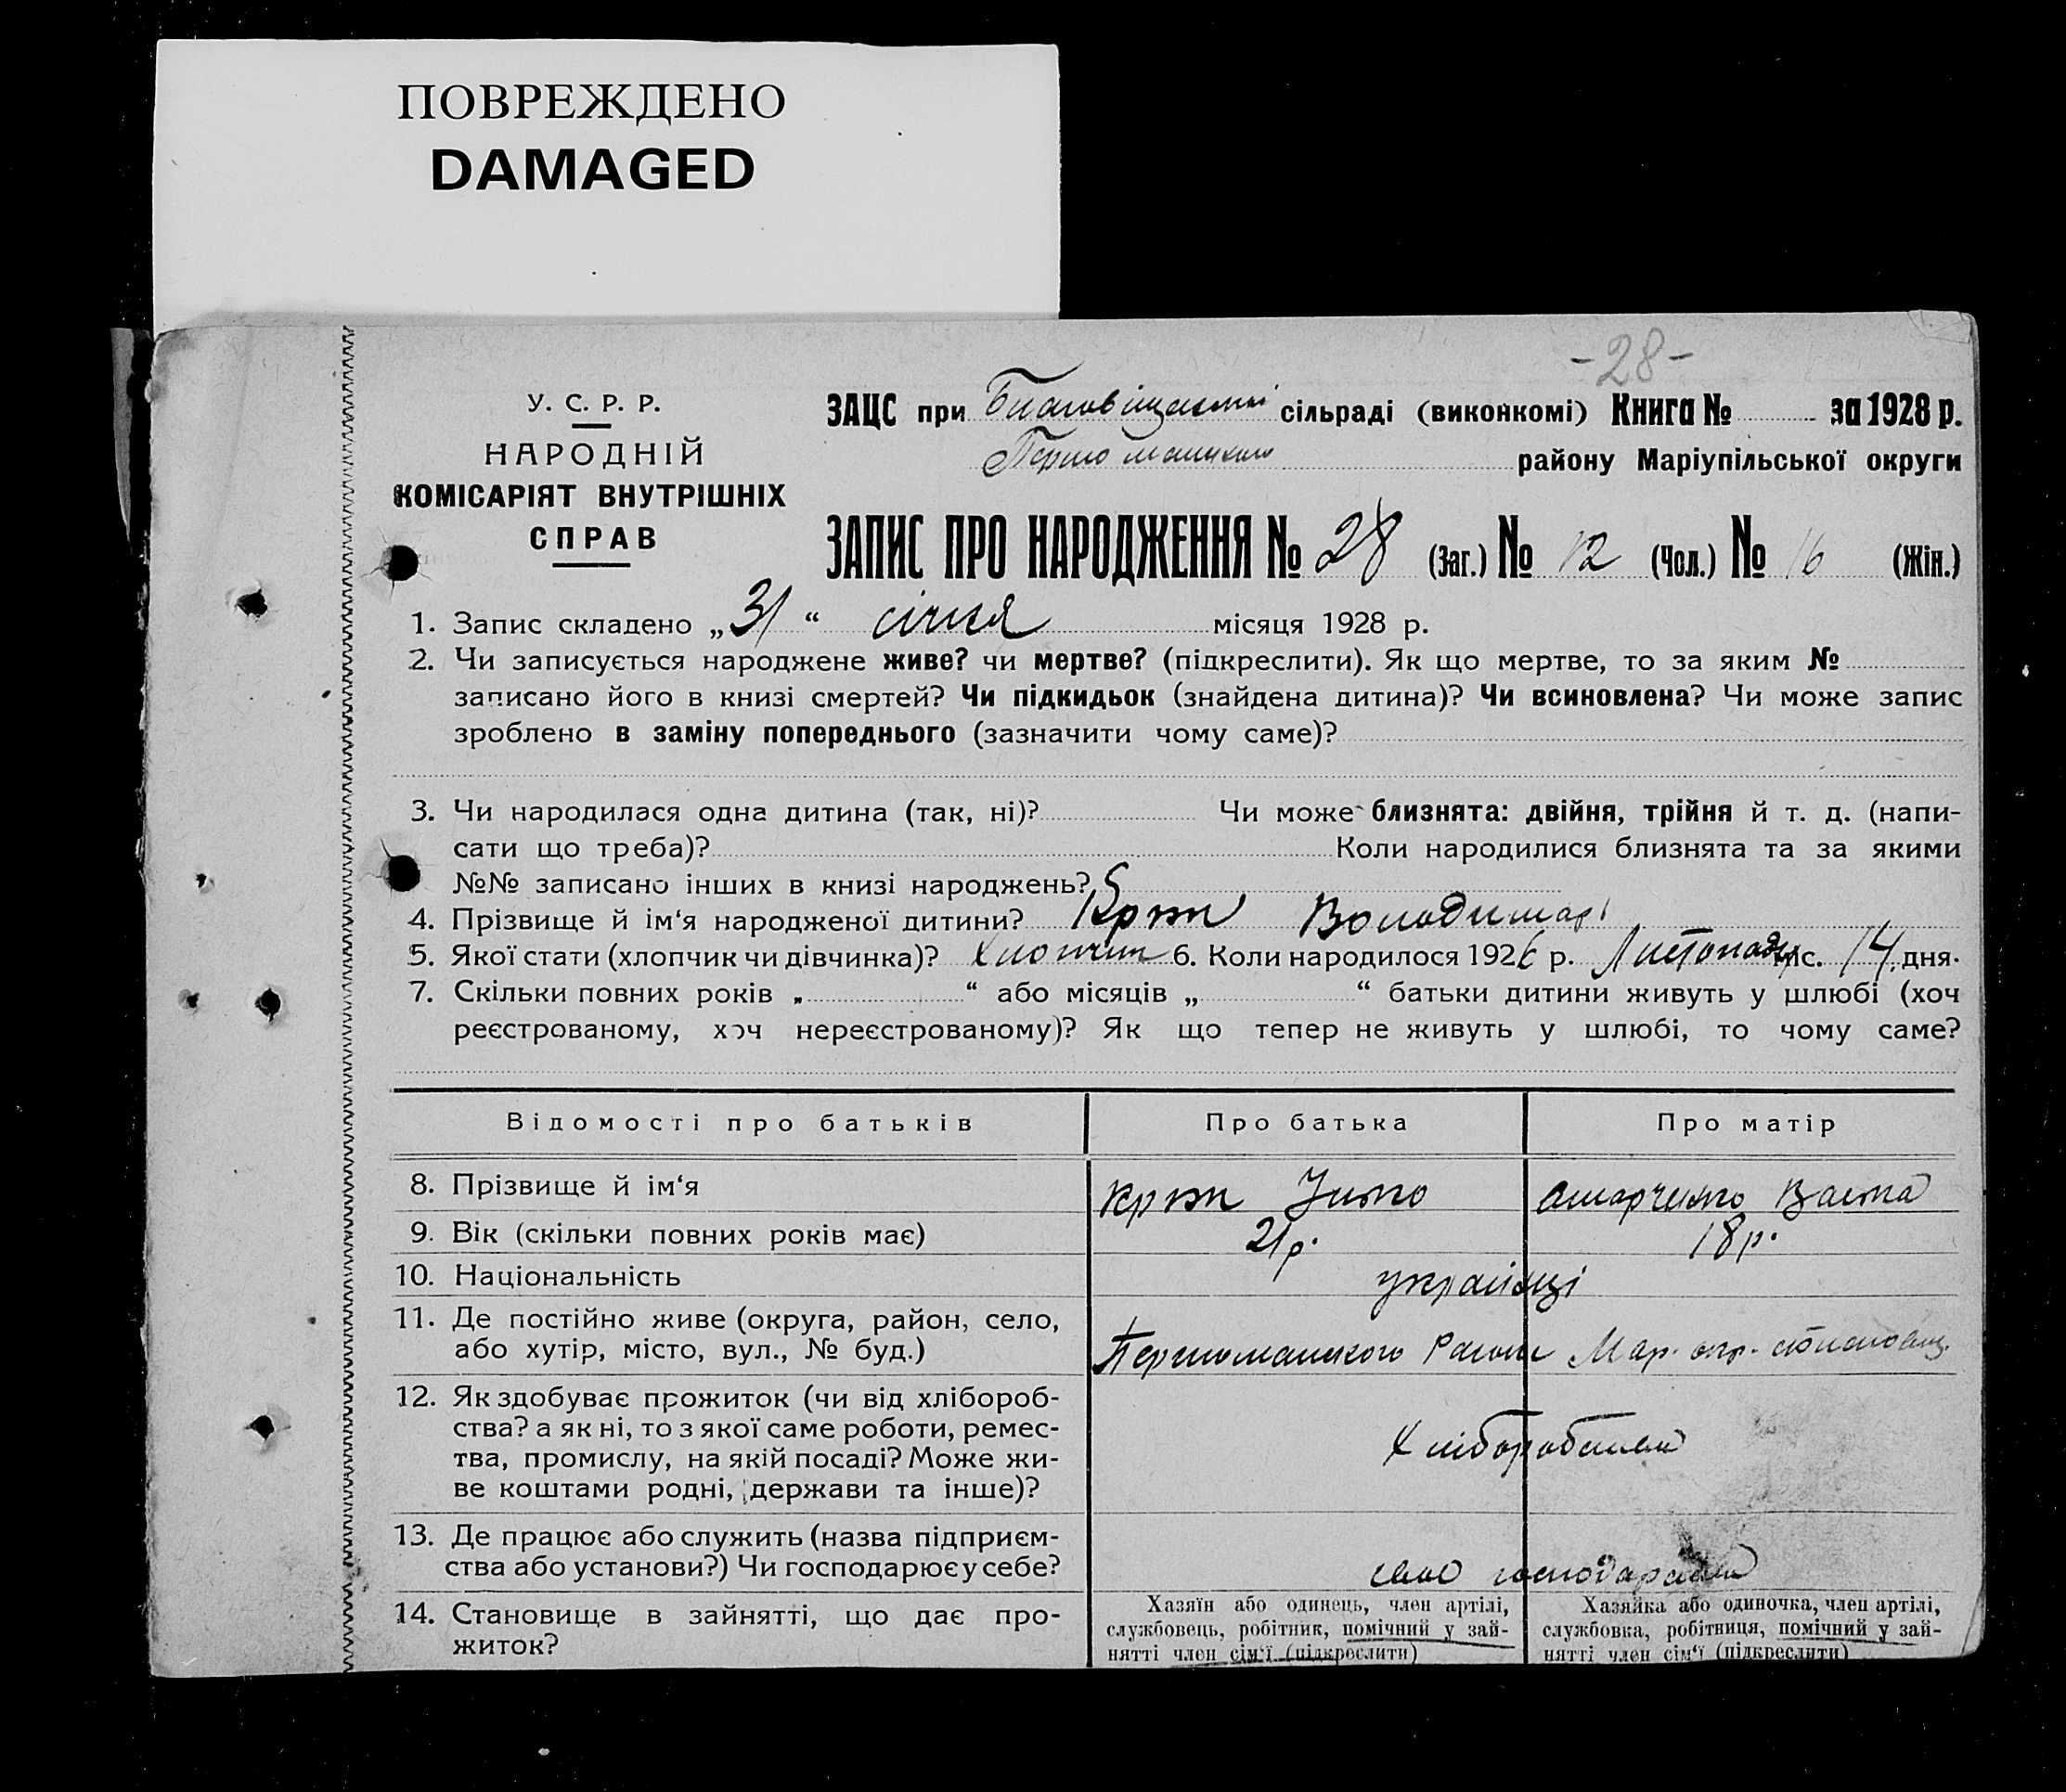 ПОВРЕЖДЕНО
DAMAGED
-28-
У. С. Р. Р.
НАРОДНІЙ
КОМІСАРІЯТ ВНУТРІШНІХ
СПРАВ
ЗАЦС при сільраді (виконкомі) Книга № за 1928 р.
району Маріупільської округи
ЗАПИС ПРО НАРОДЖЕННЯ № 28 (Заг.) № 12 (Чол.) № 16 (Жін.)
1. Запис складено „31“ січня місяця 1928 р.
2. Чи записується народжене живе? чи мертве? (підкреслити). Як що мертве, то за яким №
записано його в книзі смертей? Чи підкидьок (знайдена дитина)? Чи всиновлена? Чи може запис
зроблено в заміну попереднього (зазначити чому саме)?
3. Чи народилася одна дитина (так, ні)? Чи може близнята: двійня, трійня й т. д. (напи-
сати що треба)? Коли народилися близнята та за якими
№№ записано інших в книзі народжень?
4. Прізвище й ім‘я народженої дитини? Володимар
5. Якої стати (хлопчик чи дівчинка)? Хлопчик 6. Коли народилося 1926 р. Листопаду міс. 14 дня.
7. Скільки повних років „ “ або місяців „ “ батьки дитини живуть у шлюбі (хоч
реєстрованому, хоч нереєстрованому)? Як що тепер не живуть у шлюбі, то чому саме?
Відомості про батьків Про батька Про матір
8. Прізвище й ім‘я
9. Вік (скільки повних років має) 21 р. 18 р.
10. Національність українці
11. Де постійно живе (округа, район, село,
або хутір, місто, вул., № буд.) Першоманского Мар. окр.
12. Як здобуває прожиток (чи від хлібороб-
ства? а як ні, то з якої саме роботи, ремес-
тва, промислу, на якій посаді? Може жи-
ве коштами родні, держави та інше)?
13. Де працює або служить (назва підприєм-
ства або установи?) Чи господарює у себе?
14. Становище в зайнятті, що дає про-
житок?
Хазяїн або одинець, член артілі,
службовець, робітник, помічний у зай-
нятті член сім‘ї (підкреслити)
Хазяйка або одиночка, член артілі,
службовка, робітниця, помічний у зай-
нятті член сім‘ї (підкреслити)